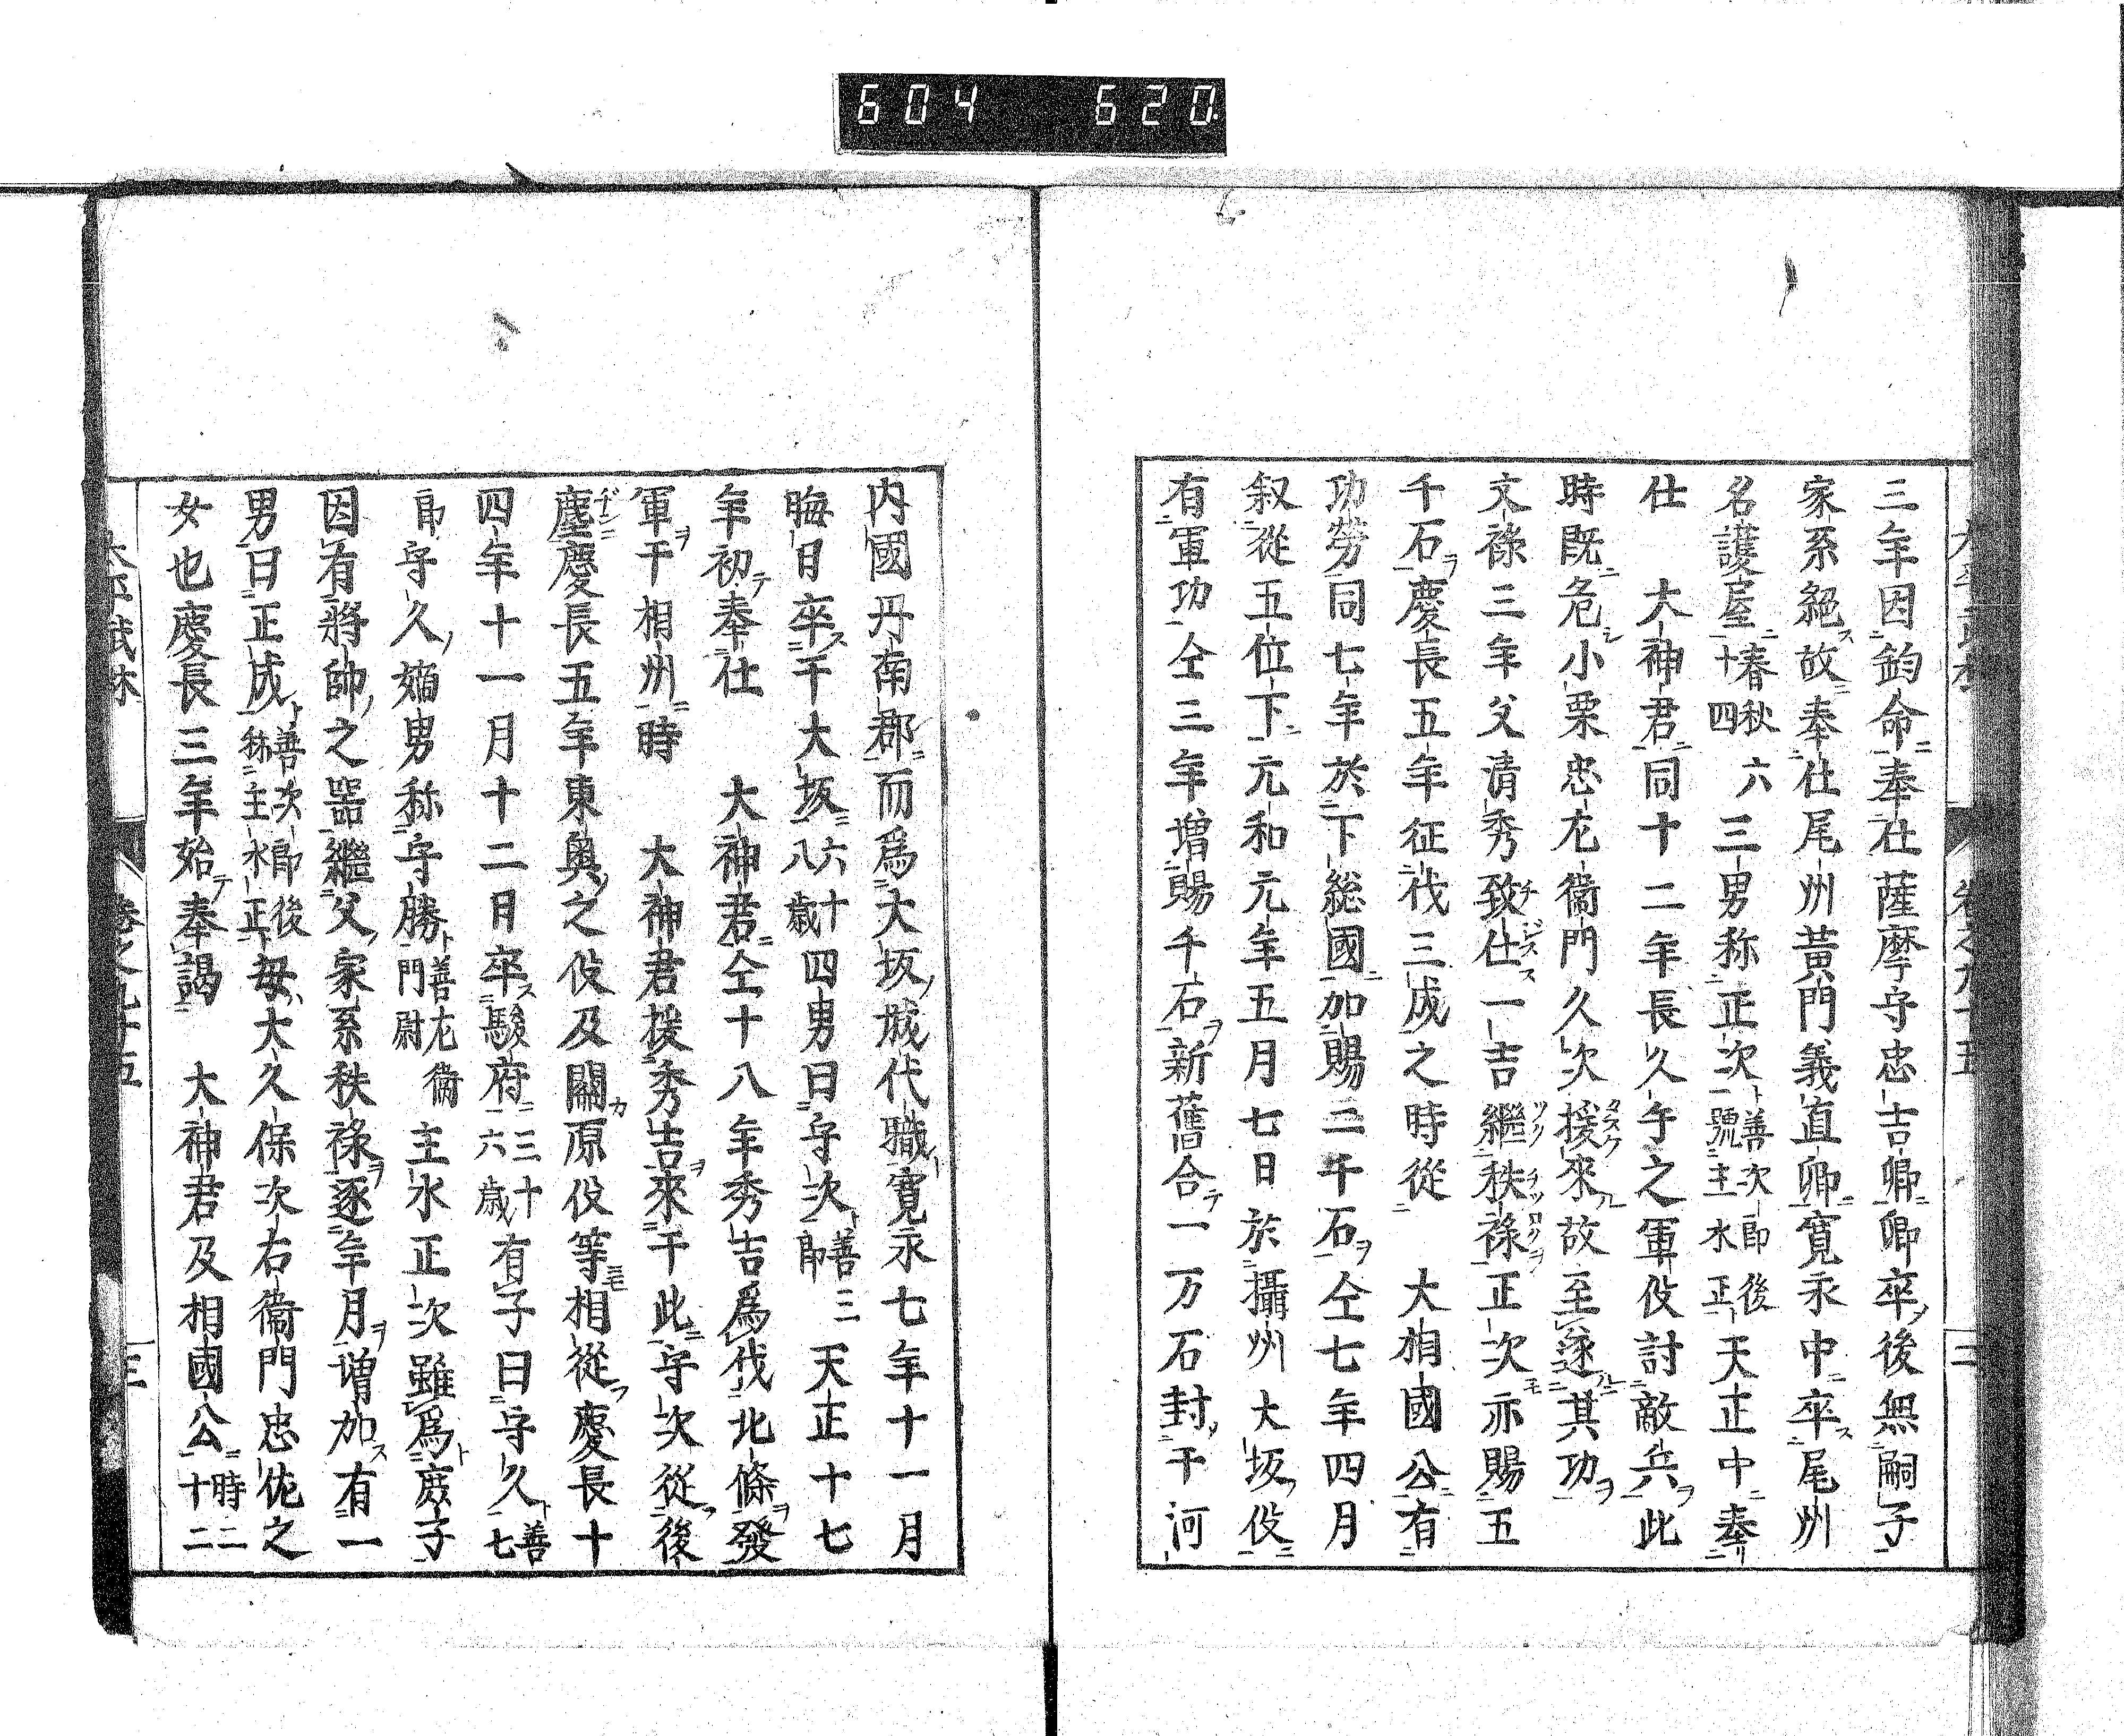 604 620
三年因鈞命奉仕薩摩守忠吉卿卿卒後無嗣子
家系絕故奉仕尾州黃門義直卿寬永中卒尾州
名護屋春秋六十四三男称正次善次郎後號主水正天正中奉
仕　大神君同十二年長久手之軍伇討敵兵此
時既危小栗忠左衞門久次援來故至遂其功
文祿三年父清秀致仕一吉繼秩祿正次亦賜五
千石慶長五年征伐三成之時從　大相國公有
功勞同七年於下総國加賜二千石仝七年四月
叙從五位下元和元年五月七日於攝州大坂伇
有軍功仝三年增賜千石新舊合一万石封于河
内國丹南郡而爲大坂城代職寬永七年十一月
晦日卒于大坂六十八歲四男曰守次善三郎天正十七
年初奉仕　大神君仝十八年秀吉爲伐北條發
軍于相州時　大神君援秀吉來于此守次從後
塵慶長五年東奥之伇及關原伇等相從慶長十
四年十一月十二月卒駿府三十六歲有子曰守久善七
郎守久嫡男称守勝善左衞門尉主水正次雖爲庶子
因有將帥之噐繼父家系秩祿逐年月增加有一
男曰正成善次郎後称主水正母大久保次右衞門忠佐之
女也慶長三年始奉謁　大神君及相國公時二十二
太平武林　卷之九十五　三